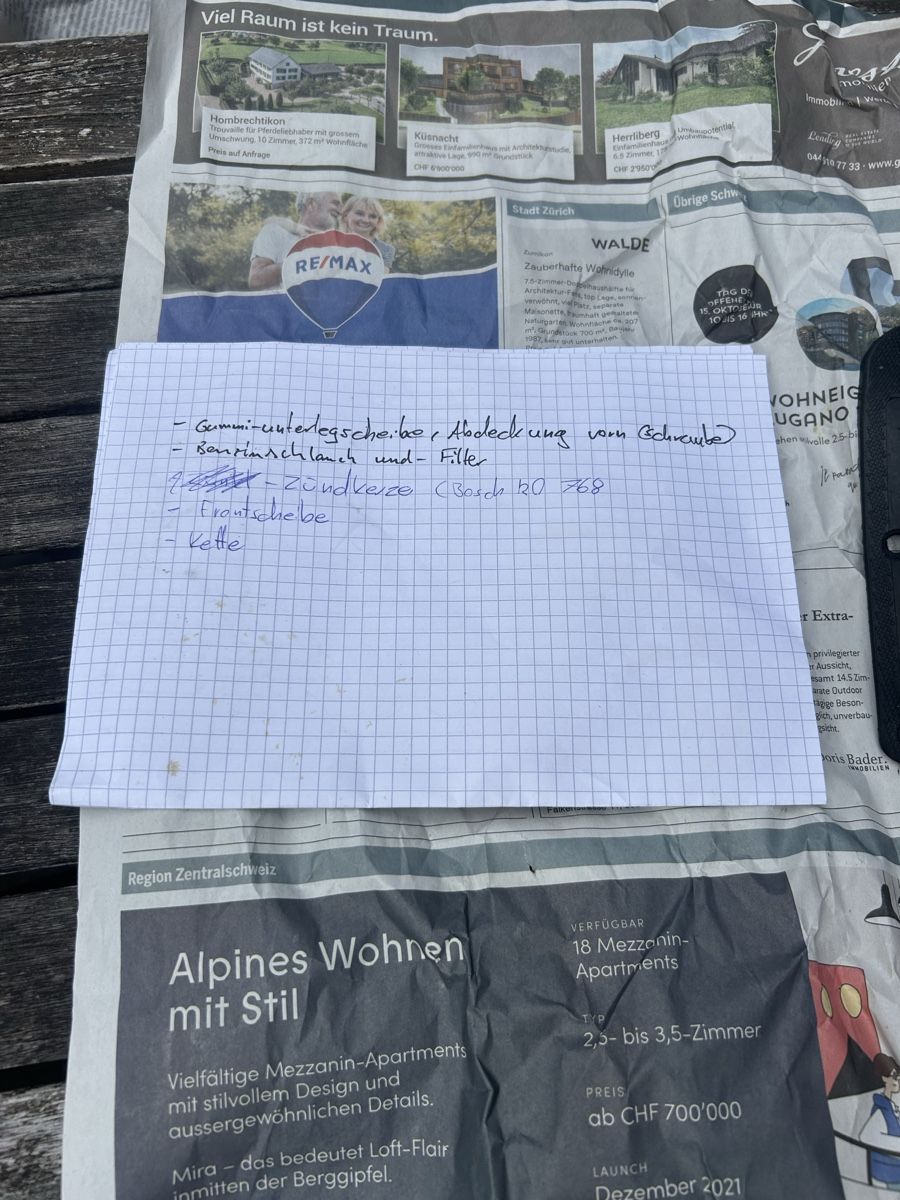 Viel Raum ist kein Traum.
Hombrechtikon
Trouvaille für Pferdeliebhaber mit grossem
Umschwung, 10 Zimmer, 372 m² Wohnfläche
Preis auf Anfrage
Küsnacht
Grosses Einfamilienhaus mit Architekturstudie,
attraktive Lage, 990 m² Grundstück
CHF 6'900'000
Herrliberg
Einfamilienhaus Umbaupotential
6.5 Zimmer, Wohnfläche
CHF 2'950'
Immobilien
044 910 77 33
RE/MAX
Stadt Zürich
WALDE
Zumikon
Zauberhafte Wohnidylle
7.5-Zimmer-Doppelhaushälfte für
Architektur-Fans, top Lage, sonnen-
verwöhnt, viel Platz, separate
Maisonette, traumhaft gestalteter
Naturgarten. Wohnfläche ca. 207
m², Grundstück 700 m², Baujahr
1987, sehr gut unterhalten.
Übrige Schw
TAG DER
OFFENEN
15. OKTOBER
10 BIS 16 UHR
WOHNEIG
LUGANO
volle 2.5-bi
- Gummi-unterlegscheibe, Abdeckung vorn (Schraube)
- Benzinschlauch und - Filter
- Zündkerze (Bosch 768
- Frontscheibe
- Kette
r Extra-
privilegierter
r Aussicht,
esamt 14.5 Zim-
arate Outdoor
Beson-
glich, unverbau-
gsicht.
Doris Bader.
IMMOBILIEN
Region Zentralschweiz
Alpines Wohnen
mit Stil
Vielfältige Mezzanin-Apartments
mit stilvollem Design und
aussergewöhnlichen Details.
Mira – das bedeutet Loft-Flair
inmitten der Berggipfel.
VERFÜGBAR
18 Mezzanin-
Apartments
TYP
2,5- bis 3,5-Zimmer
PREIS
ab CHF 700'000
LAUNCH
Dezember 2021